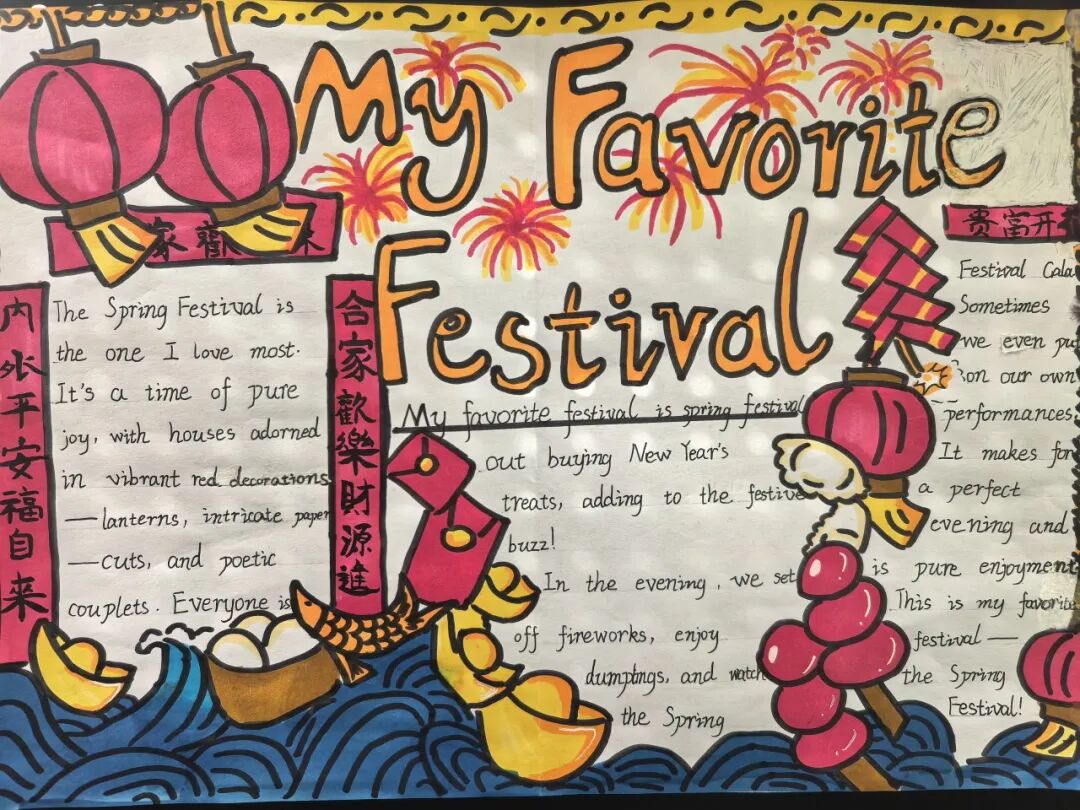 My Favorite
Festival
家歡
贵富开
内外平安福自来
合家歡樂財源進
The Spring Festival is
the one I love most.
It's a time of pure
joy, with houses adorned
in vibrant red decorations
—lanterns, intricate paper
—cuts, and poetic
couplets. Everyone is
My favorite festival is spring festival
out buying New Year's
treats, adding to the festive
buzz!
In the evening, we set
off fireworks, enjoy
dumplings, and watch
the Spring
Festival Gala
Sometimes
we even pu
on our own
performances.
It makes for
a perfect
evening and
is pure enjoyment
This is my favorite
festival —
the Spring
Festival!